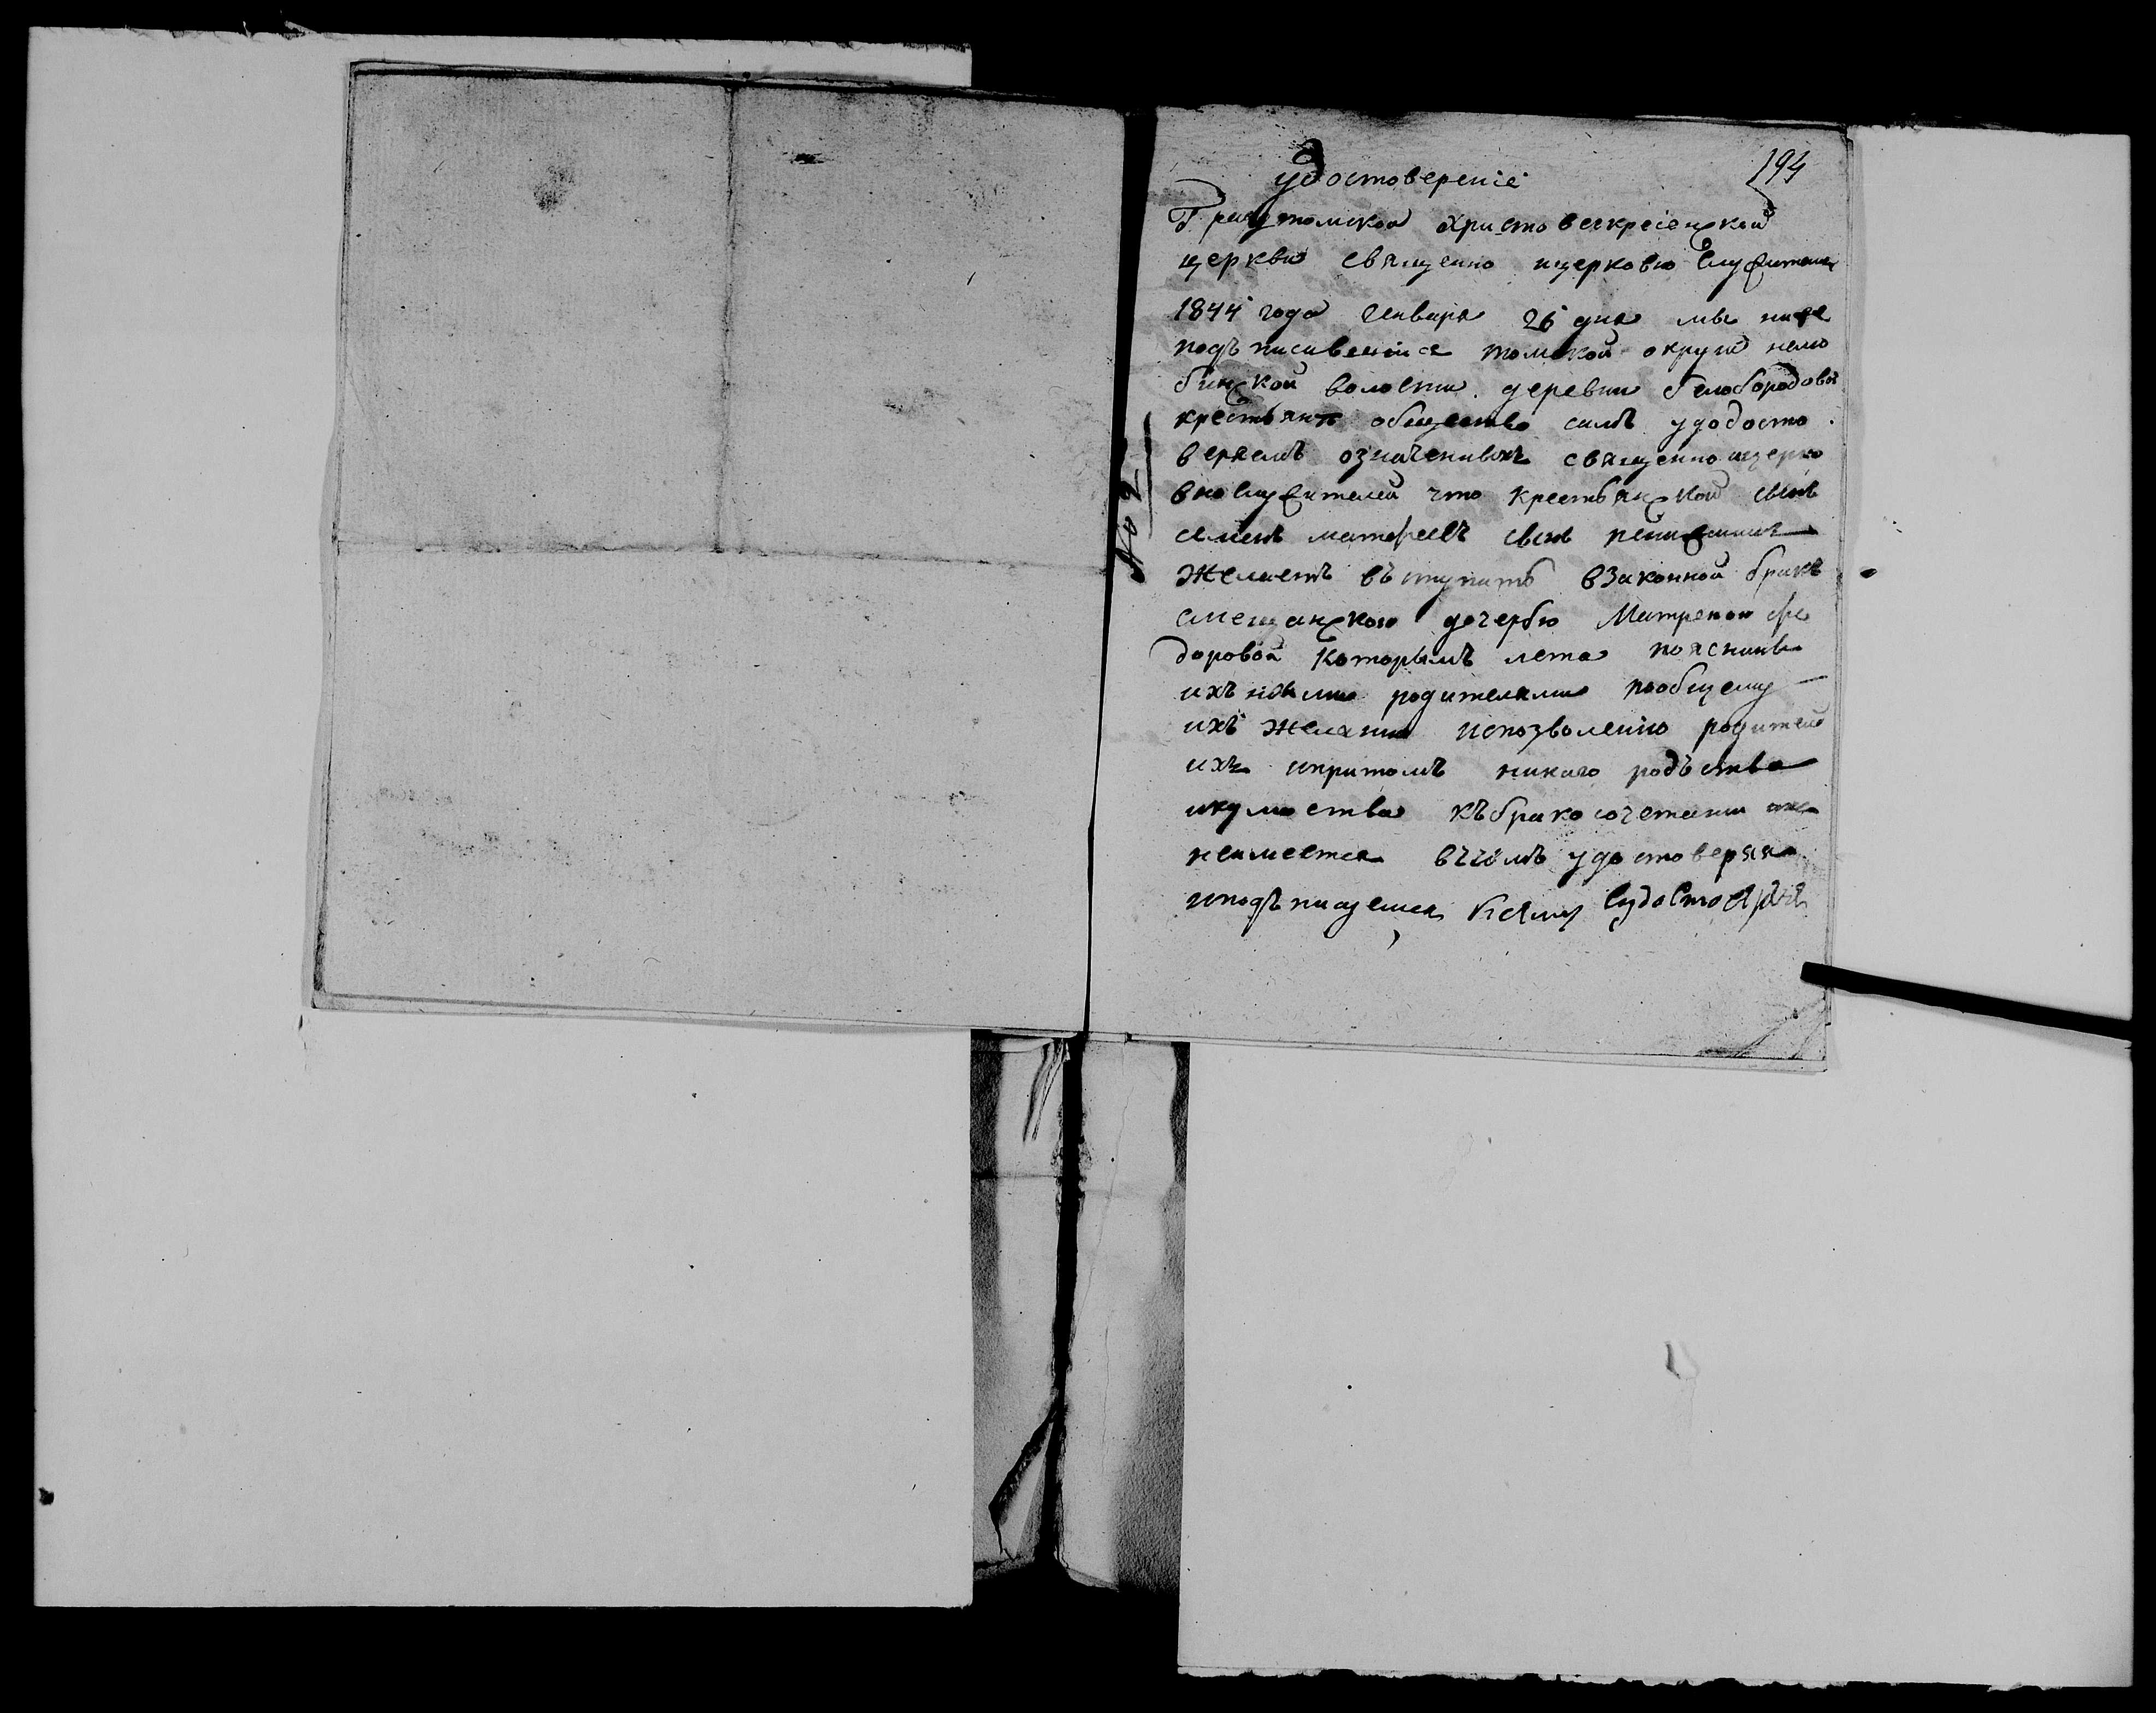 194
удостоверение
Градотомской христовскресенской
церкви священно ицерковно служители
1844 года генваря 26 дня мы ниже
подъ писавшиися томской округи нелю
бинской волости деревни белобородовой
крестьянъ общество симъ удосто
веряемъ означенныхъ священно ицерко
вно служителей что крестьянской сынъ
семенъ матфеевъ сынъ
желаетъ въступить взаконной бракъ
смещанскою дочерью Матреной фе
доровой которымъ лета пояснины
ихъними родителями пообщему
ихъ желанию ипозволению родителей
ихъ ипритомъ никаго родъства
икумоства къбракосочетании
неимеется въчёмъ удостоверяя
иподъписуемся Ксему
№ 2